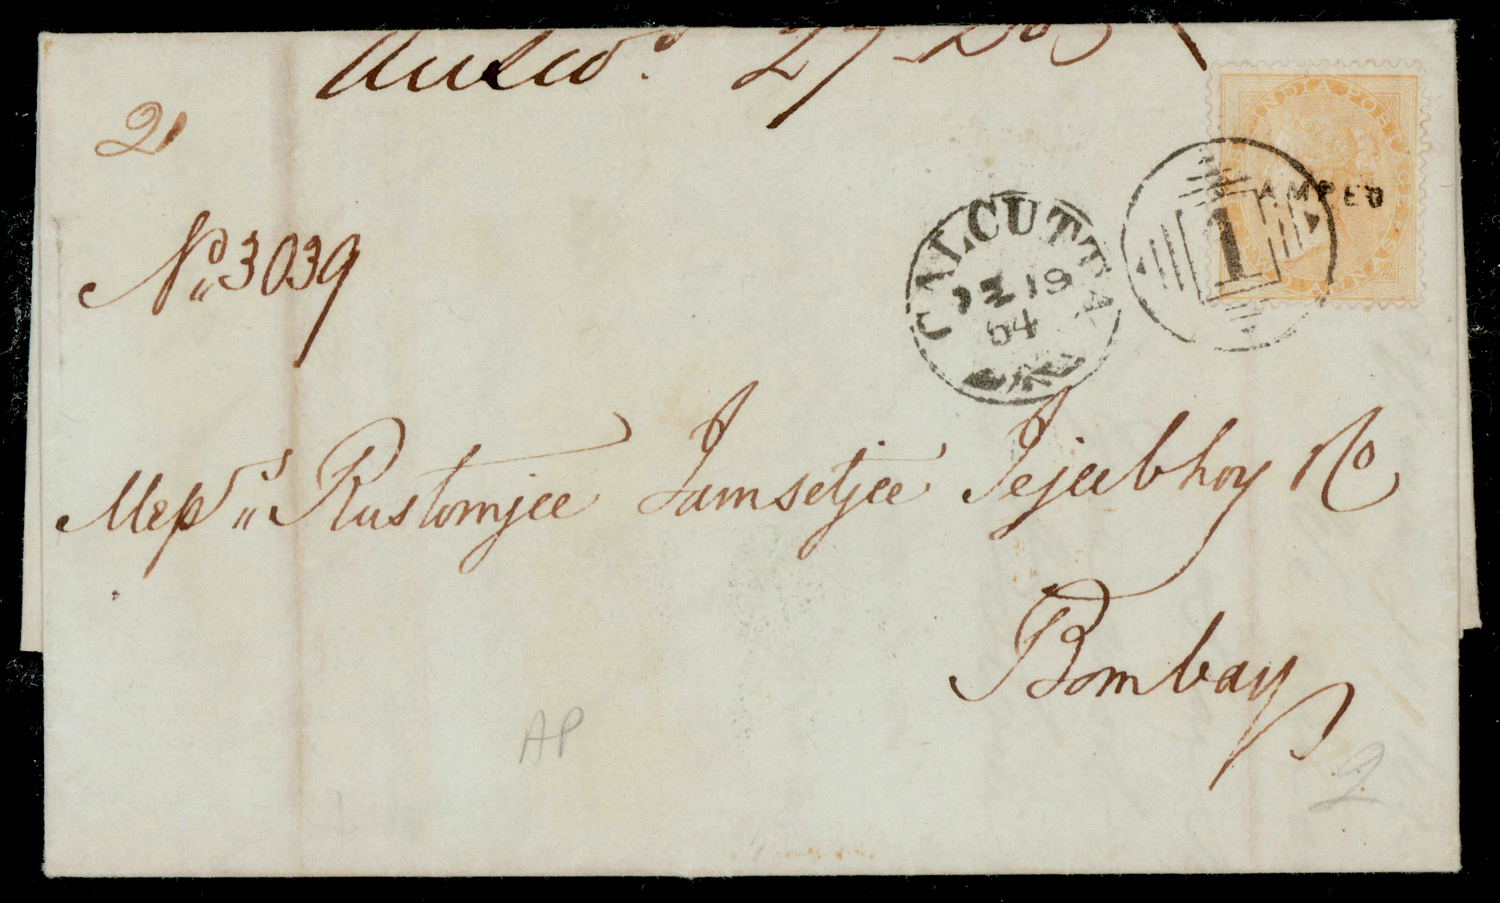 Answd. 27
2
INDIA POSTAGE
No 3039
AMPED
1
CALCUTTA
19
64
Messrs Rustomjee Jamsetjee Jejeebhoy & Co
Bombay
AP
2